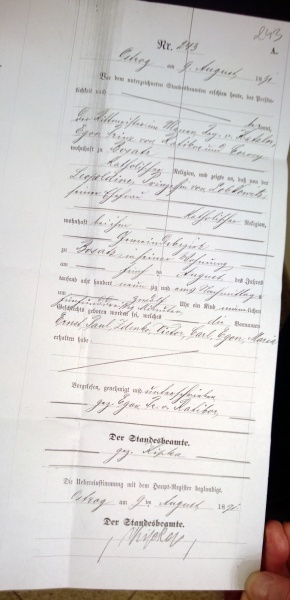 243
Nr. 243
A.
Ostrog am 9. August 189
Vor dem unterzeichneten Standesbeamten erschien heute, der Persön-
lichkeit nach
kannt,
der Rittmeister
Egon Prinz von Ratibor und Corvey
wohnhaft zu Bosatz
katholischer Religion, und zeigte an, daß von der
Leopoldine, Prinzessin von Lobkowitz
seiner Ehefrau
katholischer Religion,
wohnhaft bei ihm
Gemeindebezirk
zu Bosatz in seiner Wohnung
am fünf ten August des Jahres
tausend acht hundert neunzig und eins Nachmittags
um Uhr ein Kind männlichen
Geschlechts geboren worden sei, welches die Vornamen
Ernst, Paul, Zdenko, Victor, Carl, Egon, Maria
erhalten habe
Vorgelesen, genehmigt und unterschrieben
gez. Egon Pr. v. Ratibor
Der Standesbeamte.
gez.
Die Uebereinstimmung mit dem Haupt-Register beglaubigt.
Ostrog am 9 ten August 189
Der Standesbeamte.